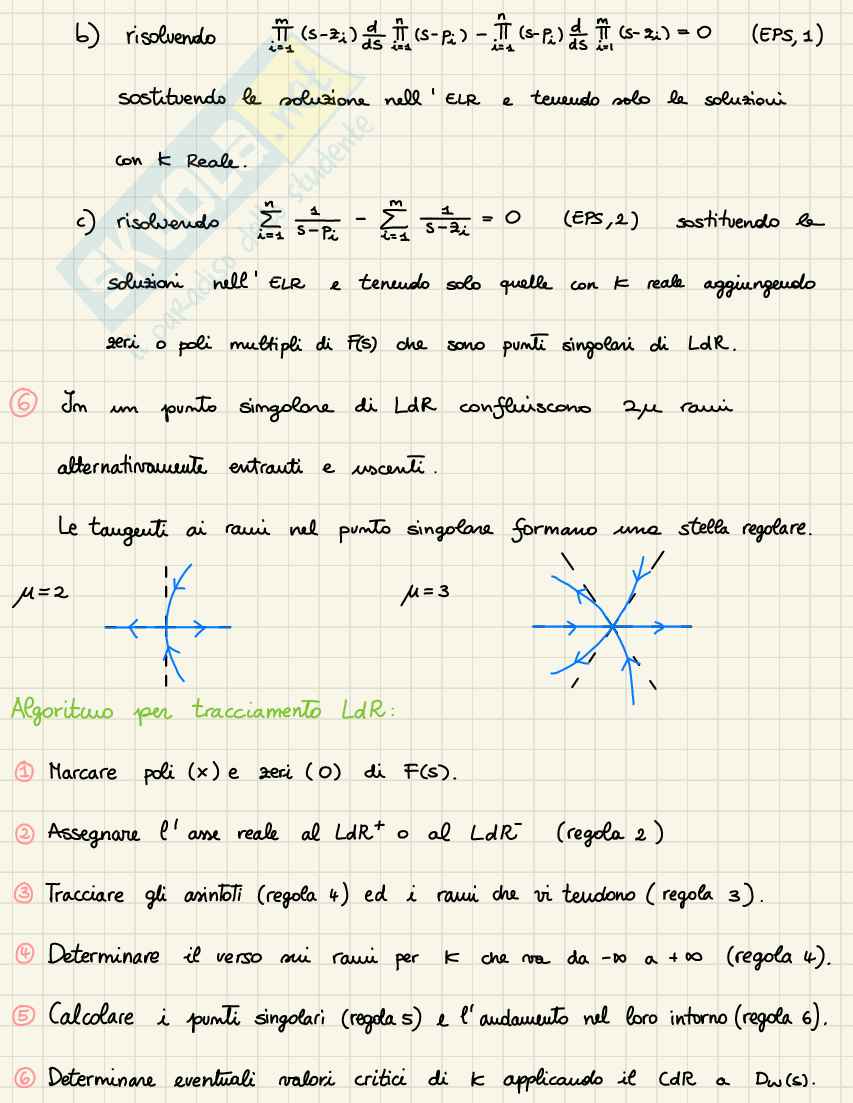 b) risolvendo ∏_{i=1}^{m} (s-z_i) d/ds ∏_{i=1}^{n} (s-p_i) - ∏_{i=1}^{n} (s-p_i) d/ds ∏_{i=1}^{m} (s-z_i) = 0 (EPS,1)
sostituendo le soluzione nell' ELR e tenendo solo le soluzioni
con k Reale.
c) risolvendo ∑_{i=1}^{n} 1/(s-p_i) - ∑_{i=1}^{m} 1/(s-z_i) = 0 (EPS,2) sostituendo le
soluzioni nell' ELR e tenendo solo quelle con k reale aggiungendo
zeri o poli multipli di F(s) che sono punti singolari di LdR.
⑥ In un punto singolare di LdR confluiscono 2μ rami
alternativamente entranti e uscenti.
Le tangenti ai rami nel punto singolare formano una stella regolare.
μ=2 μ=3
Algoritmo per tracciamento LdR:
① Marcare poli (x) e zeri (0) di F(s).
② Assegnare l' asse reale al LdR⁺ o al LdR⁻ (regola 2)
③ Tracciare gli asintoti (regola 4) ed i rami che vi tendono (regola 3).
④ Determinare il verso sui rami per k che va da -∞ a +∞ (regola 4).
⑤ Calcolare i punti singolari (regola 5) e l'andamento nel loro intorno (regola 6).
⑥ Determinare eventuali valori critici di k applicando il CdR a Dw(s).
SKUOLA.net
il paradiso dello studente